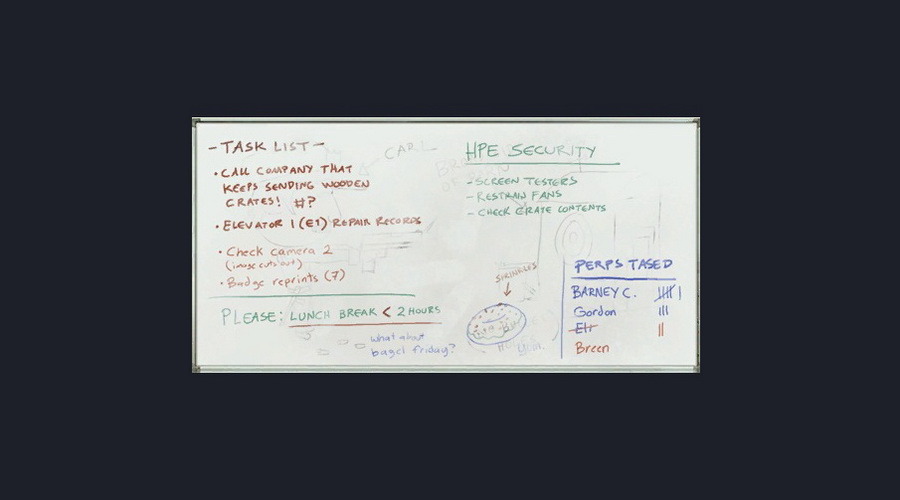 - TASK LIST -
• CALL COMPANY THAT
KEEPS SENDING WOODEN
CRATES! #?
• ELEVATOR 1 (E1) REPAIR RECORDS
• Check camera 2
(image cuts out)
• Badge reprints (7)
PLEASE: LUNCH BREAK < 2 HOURS
What about
bagel friday?
CARL
HPE SECURITY
- SCREEN TESTERS
- RESTRAIN FANS
- CHECK CRATE CONTENTS
SPRINKLES
PERPS TASED
BARNEY C.
Gordon
Eli
Breen